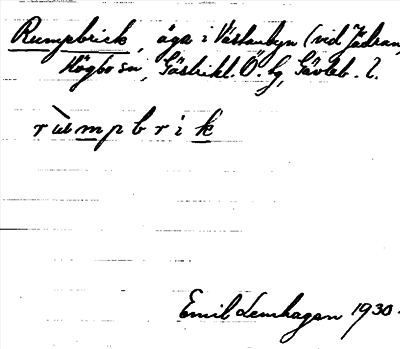 Rumpbrick, äga i Västanbyn (vid Jädraån,
Högbo sn, Gästrikl. Ö. hg, Gävleb. l.
rùmpbrik
Emil Lemhagen 1930.